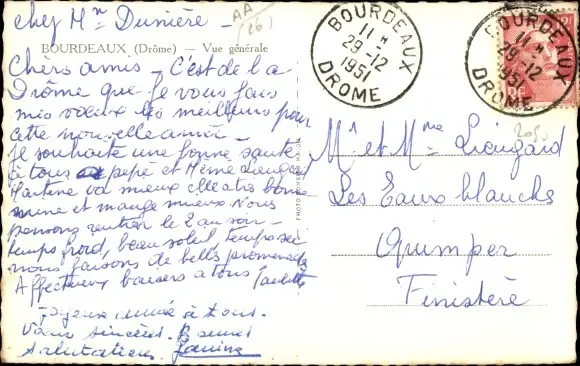 chez Mr Dunière -
AA
(26)
BOURDEAUX (Drôme) — Vue générale
Chers amis - C'est de la
Drôme que je vous fais
mes voeux les meilleurs pour
cette nouvelle année -
Je souhaite une bonne santé
à tous pépé et Mémé Lieugard
Martine va mieux elle a très bonne
mine et mange mieux Nous
pensons rentrer le 2 au soir -
temps froid, beau soleil, temps sec
nous faisons de belles promenades
Affectueux baisers à tous Paulette
Joyeuse année à tous.
Voeux sincères. Bonnes
Salutations. Janine
BOURDEAUX
11 H
29-12
1951
DROME
BOURDEAUX
11 H
29-12
1951
DROME
Mr et Mme Lieugard
Les Eaux blanches
Quimper
Finistère